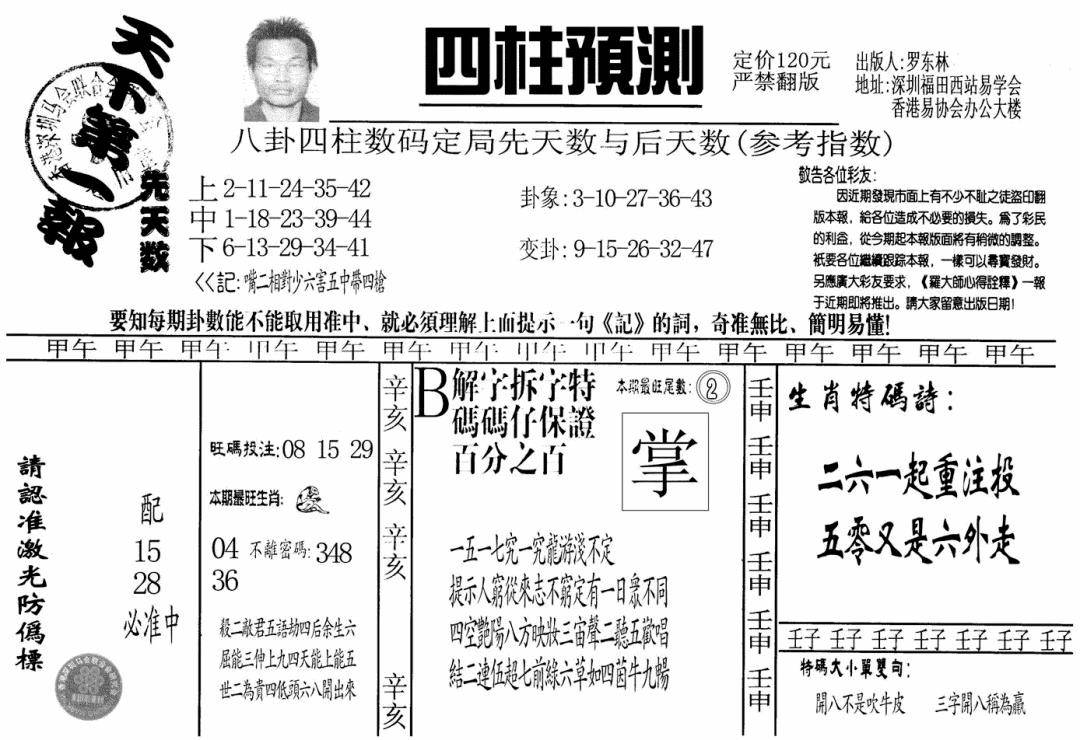 天下第一報
四柱預測
定价120元
严禁翻版
出版人:罗东林
地址:深圳福田西站易学会
香港易协会办公大楼
八卦四柱数码定局先天数与后天数(参考指数)
先天数
上2-11-24-35-42
中1-18-23-39-44
下6-13-29-34-41
<<記:嘴二相對少六害五中帶四槍
卦象:3-10-27-36-43
变卦:9-15-26-32-47
敬告各位彩友:
因近期發現市面上有不少不恥之徒盜印翻
版本報，給各位造成不必要的損失。為了彩民
的利益，從今期起本報版面將有稍微的調整。
衹要各位繼續跟踪本報，一樣可以尋寶發財。
另應廣大彩友要求，《羅大師心得詮釋》一報
于近期即將推出。請大家留意出版日期!
要知每期卦數能不能取用准中、就必須理解上面提示一句《記》的詞，奇准無比、簡明易懂!
甲午 甲午 甲午 甲午 甲午 甲午 甲午 甲午 甲午 甲午 甲午 甲午 甲午 甲午 甲午
請認准激光防僞標
配
15
28
必准中
旺碼投注:08 15 29
本期最旺生肖:
04 不離密碼:348
36
殺二敵君五語劫四后余生六
屈能三伸上九四天能上能五
世二為貴四低頭六八開出來
辛亥
辛亥
辛亥
辛亥
B解字拆字特
碼碼仔保證
百分之百
本期最旺尾數:2
掌
一五一七究一究龍游淺不定
提示人窮從來志不窮定有一日衆不同
四空艷陽八方映妝三宙聲二聽五歡唱
結二連伍超七前綠六草如四茵牛九暢
壬申
壬申
壬申
壬申
壬申
壬申
生肖特碼詩:
二六一起重注投
五零又是六外走
壬子 壬子 壬子 壬子 壬子 壬子 壬子
特碼大小單雙句:
開八不是吹牛皮 三字開八稱為贏